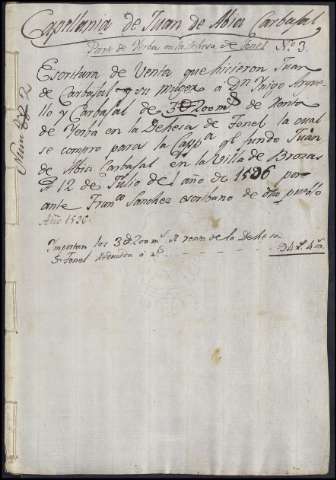 Capellania de Juan de Abia Carbajal
Parte de Yerba en la dehesa de Fonel Nº 3.
Escritura de Venta que hicieron Juan
de Carbajal y su muger a Dn Yñigo
y Carbajal de 3U200 ms de Renta
de Yerba en la Dehesa de Fonel la cual
se compro para la Cappa. qe. fundo Juan
de Abia Carbajal en la Villa de Brozas
a 12 de Julio del año de 1526 por
ante Franco Sanchez escribano de dho pueblo
Año 1526
ymportan los 3U200 ms de renta de la Dehesa
Fonel
Num 822